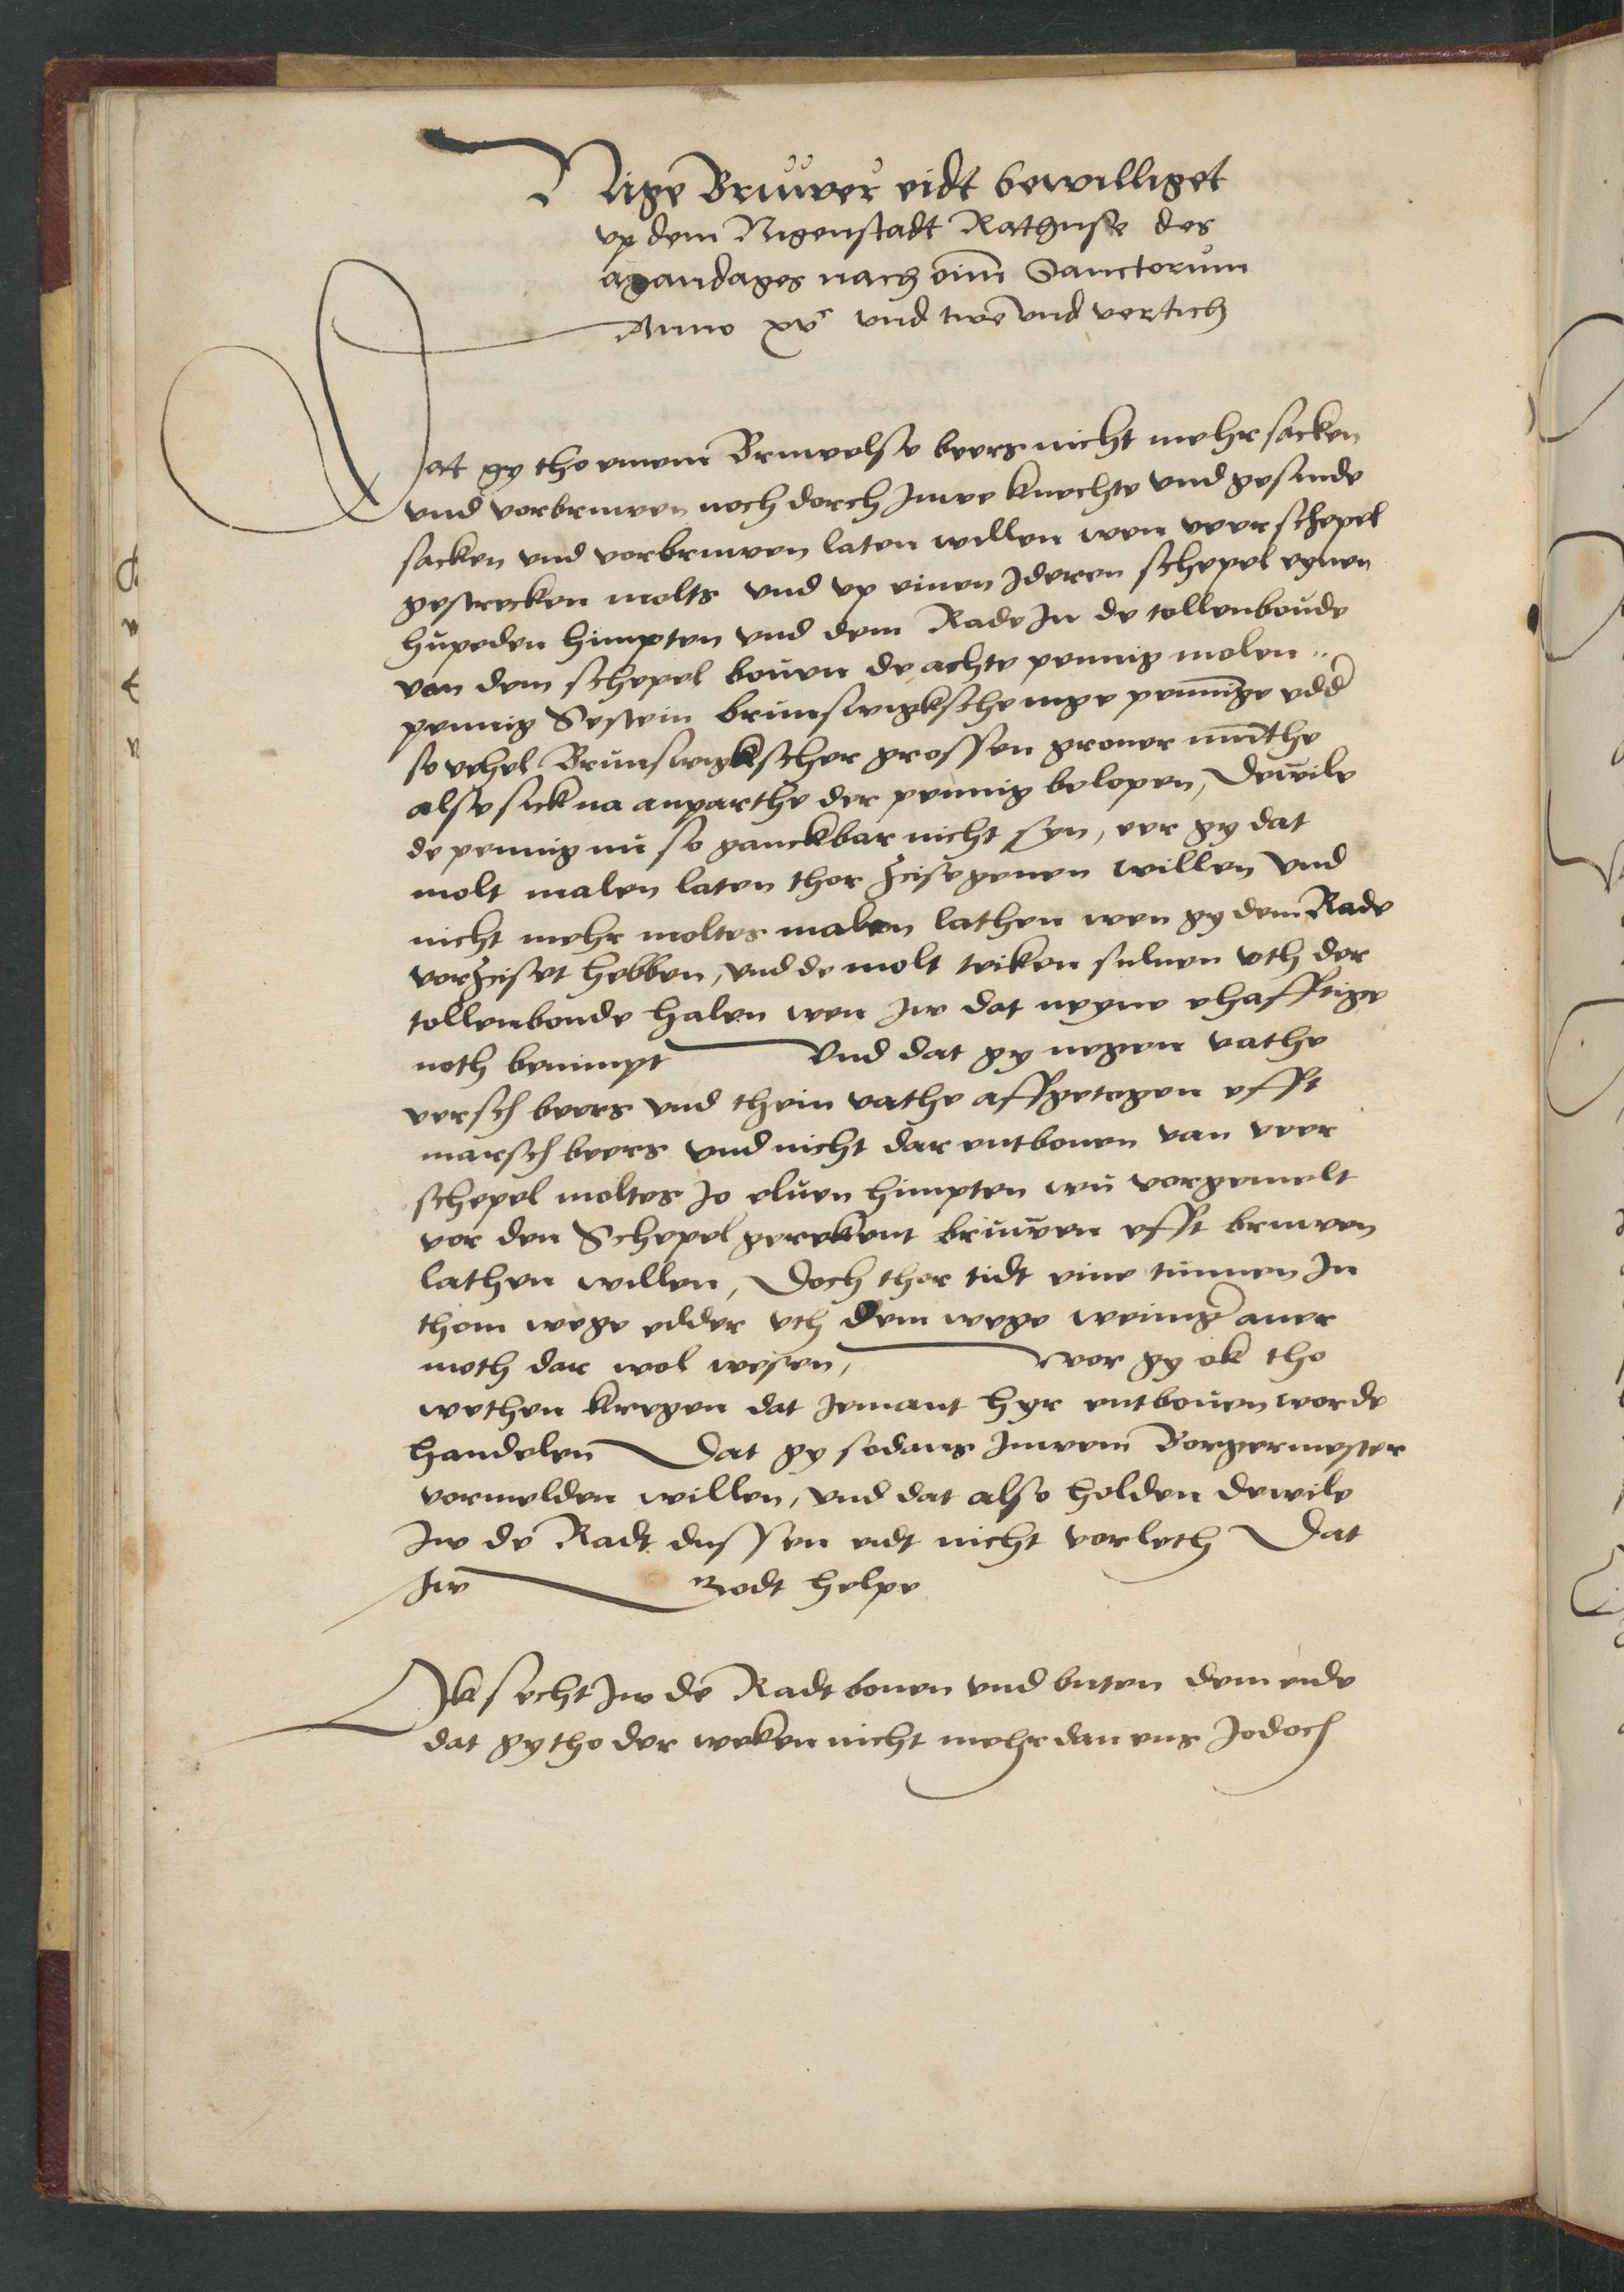 Nige Bruwer eidt bewilliget
vp dem Nigenstadt Rathuse des
auandages nach oim Sanctorum
Anno xvc vnd twe vnd vertich
Dat gy tho einem Bruwelse beers nicht mehr sacken
vnd vorbruwen noch dorch Juwe knechte vnd gesinde
sacken vnd vorbruwen laten willen wen veer schepel
gestrecken molts vnd vp einen Jderen schepel eynen
hupeden himpten vnd dem Rade Jn de tollenboude
van dem schepel bouen de achte pennig molen
pennig Sestein brunswigksche nige pennige edder
so vehel Brunswigkscher grossen grouer munthe
alse sick na anparthe der pennig belopen, Dewile
de pennig nu so ganckbar nicht syn, eer gy dat
molt malen laten thor Zise geuen willen vnd
nicht mehr moltes malen lathen wen gy dem Rade
vorZiset hebben, vnd de molt teiken suluen vth der
tollenboude halen wen Jw dat neyne ehafftige
noth benimpt Vnd dat gy negen vathe
versch beers vnd thein vathe affgetogen efft
marsch beers vnd nicht dar entbouen van veer
schepel moltes Jo eluen himpten wu vorgemelt
vor den Schepel gerekent bruwen efft bruwen
lathen willen, Doch thor tidt eine tunnen Jn
thom wege edder vth dem wege weinig auer
moth dar wol wesen, wor gy ok tho
wethen kregen dat Jemant hyr entbouen worde
handelen Dat gy sodans Juwem Borgermester
vormelden willen, vnd dat also holden dewile
Jw de Radt dussen eidt nicht vorleth Dat
Jw Godt helpe
Ok secht Jw de Radt bouen vnd buten dem eide
dat gy tho der weken nicht mehr dan ens Jedoch